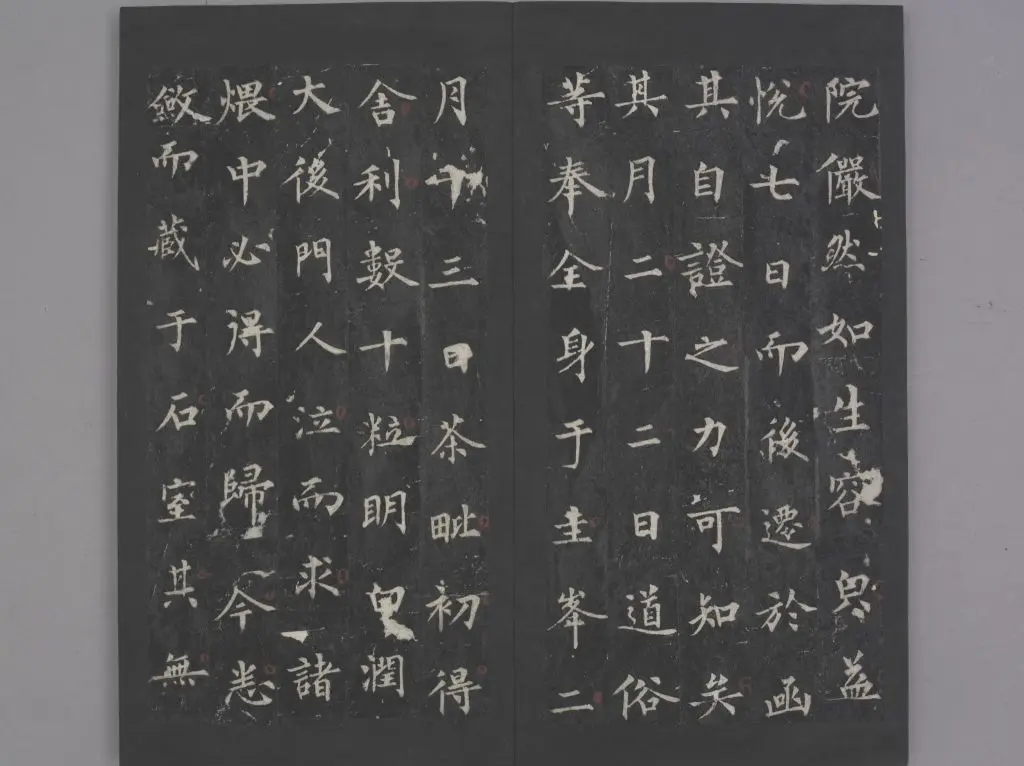 院儼然如生容皃益
悅七日而後遷於函
其自證之力可知矣
其月二十二日道俗
等奉全身于圭峯二
月十三日荼毗初得
舍利數十粒明白潤
大後門人泣而求諸
煨中必得而歸今悉
斂而藏于石室其無